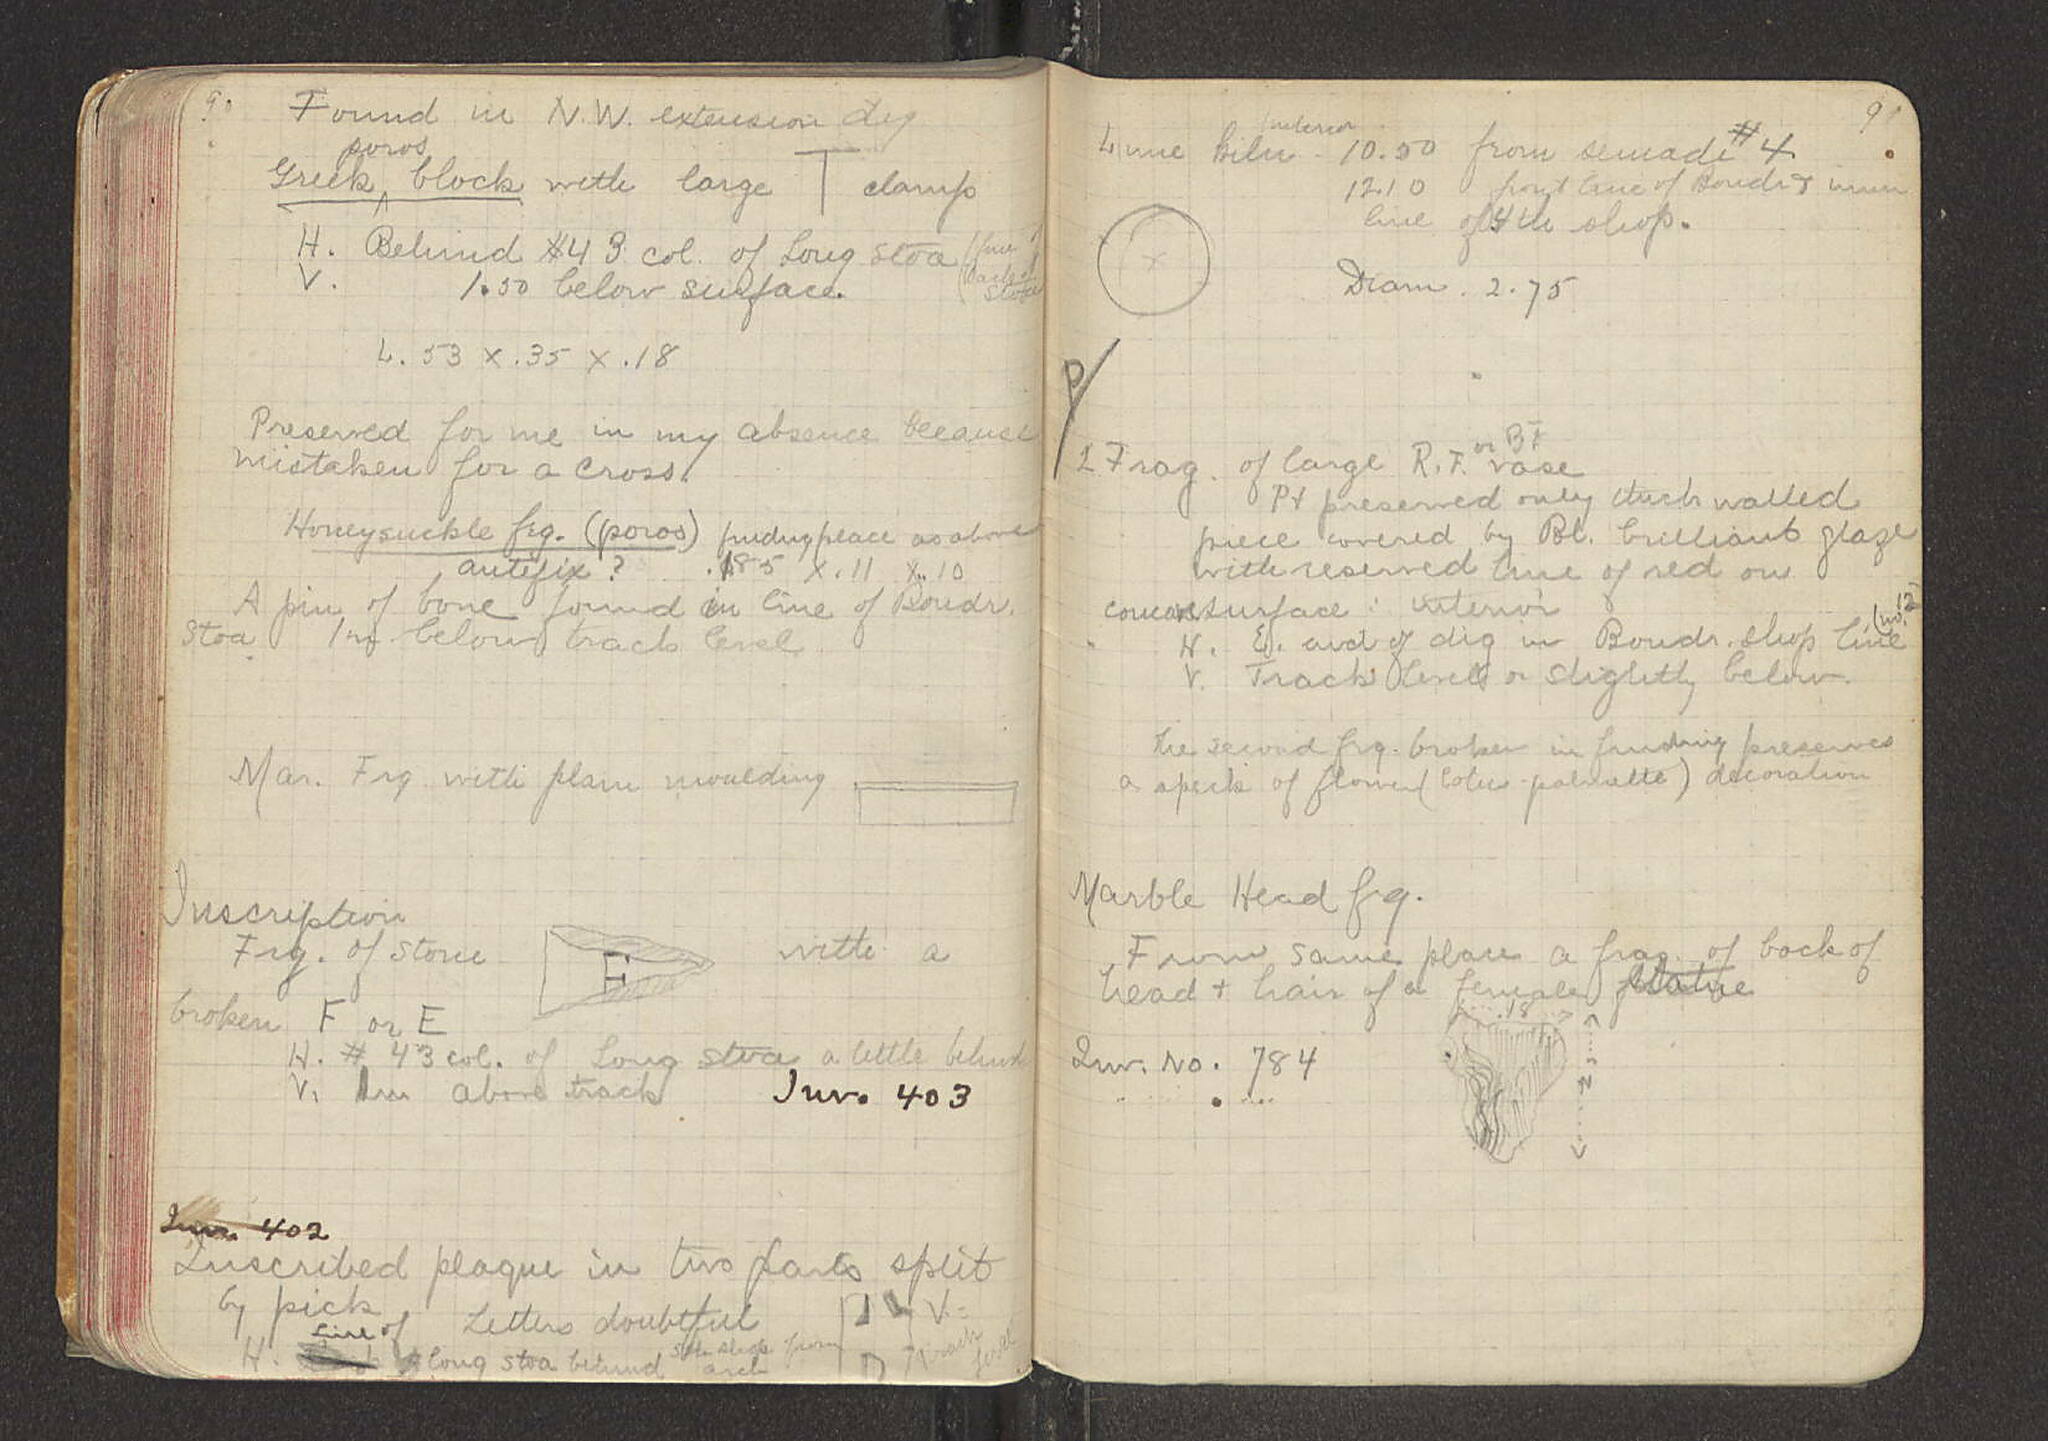 90
Found in N.W. extension dig
poros
Greek block with large T clamp
H. Behind #43 col. of Long Stoa (line of
back of
Stoa
V. 1.50 below surface.
L. 53 x .35 x .18
Preserved for me in my absence because
mistaken for a cross.
Honeysuckle frg. (poros) finding place as above
antefix? .185 x .11 x .10
A pin of bone found in line of Boudr.
Stoa 1m below track level
Mar. Frg with plain moulding
Inscription
Frg. of stone E with a
broken F or E
H. #43 col. of Long stoa a little behind
V. 1m above track Inv. 403
Inv. 402
Inscribed plaque in two parts split
by pick
Letters doubtful
V. =
track
level
H. Line of long stoa behind 5th shop from
arch
91
interior
Lime kiln 10.50 from #4
12.10 front line of Boudr + inner
line of 4th shop.
x
Diam. 2.75
P
2 Frag. of large R.F. or BF vase
Pt preserved only thick walled
piece covered by Bl. brilliant glaze
with reserved line of red on
surface: interior
H. E. end of dig in Boudr. shop line (no. 12
V. Track level or slightly below.
the second frg. broken in finding preserves
a speck of flower (lotus-palmette) decoration
Marble Head frg.
From same place a frag. of back of
head + hair of a female statue
.18
Inv. No. 784